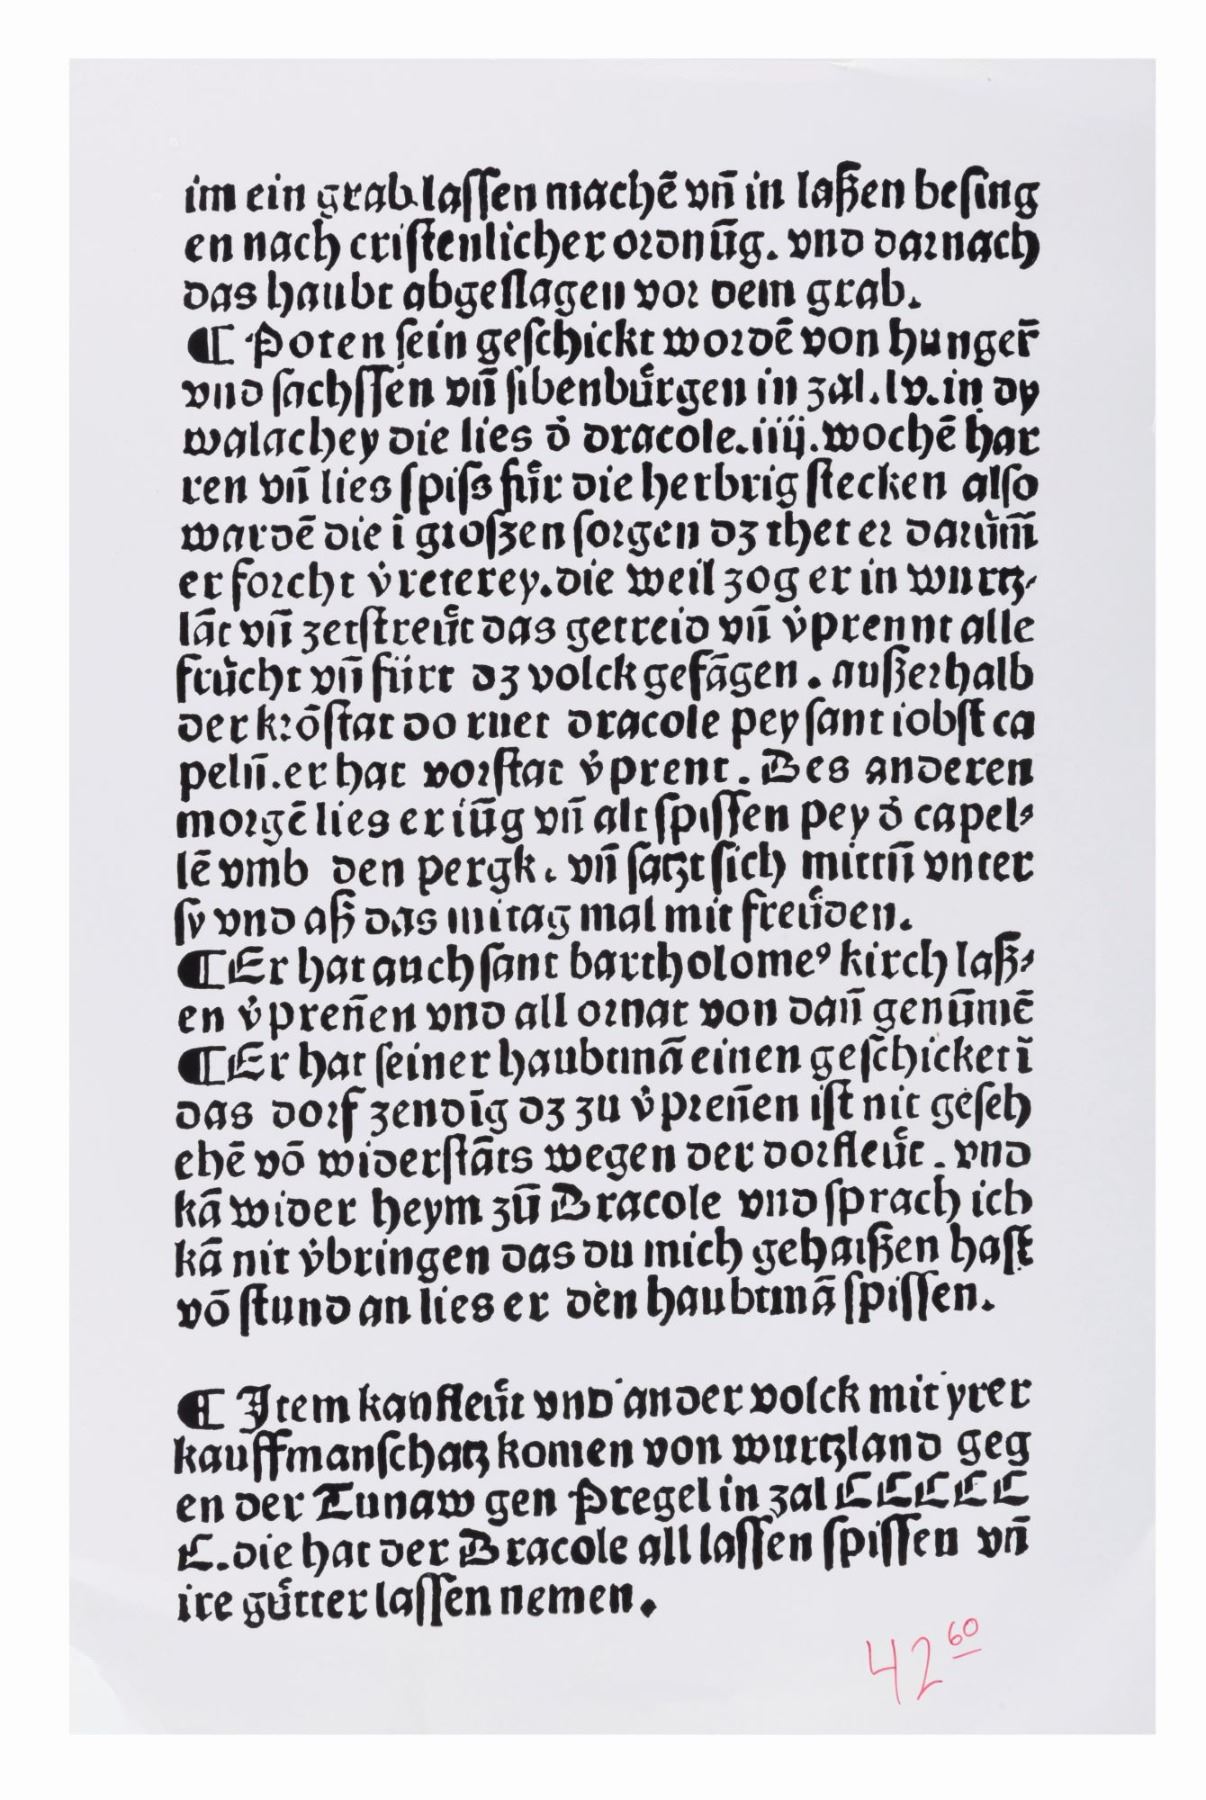 im ein grab lassen machē vn̄ in laßen besing
en nach cristenlicher ordnūg. vnd darnach
das haubt abgeslagen vor dem grab.
¶ Poten sein geschickt wordē von hunger̄
vnd sachssen vn̄ sibenbuͤrgen in zal.lv.in dy
walachey die lies v̇ dracole.iiij.wochē har
ren vn̄ lies spiss fuͤr die herbrig stecken also
wardē die ī groszen sorgen dz thet er darūm̄
er forcht v̇reterey.die weil zog er in wurtz⸗
lāt vn̄ zerstreuͤt das getreid vn̄ v̇prennt alle
fruͤcht vn̄ fürt dz volck gefāgen. außerhalb
der krōstat do ruet dracole pey sant iobst ca
peln̄.er hat vorstat v̇prent. Des anderen
morgē lies er iūg vn̄ alt spissen pey ḋ capel⸗
lē vmb den pergk. vn̄ satzt sich mittn̄ vnter
sy vnd aß das mitag mal mit freuͤden.
¶ Er hat auch sant bartholomeꝰ kirch laß⸗
en v̇pren̄en vnd all ornat von dan̄ genūmē
¶ Er hat seiner haubtmā einen geschicket ī
das dorf zendīg dz zu v̇pren̄en ist nit gesch
ehē vō widerstāts wegen der dorfleuͤt. vnd
kā wider heym zū Dracole vnd sprach ich
kā nit v̇bringen das du mich gehaißen hast
vō stund an lies er den haubtmā spissen.
¶ Item kaufleuͤt vnd ander volck mit yrer
kauffmanschatz komen von wurtzland geg
en der Tunaw gen Pregel in zal CCCCC
C.die hat der Dracole all lassen spissen vn̄
ire guͤtter lassen nemen.
42 60